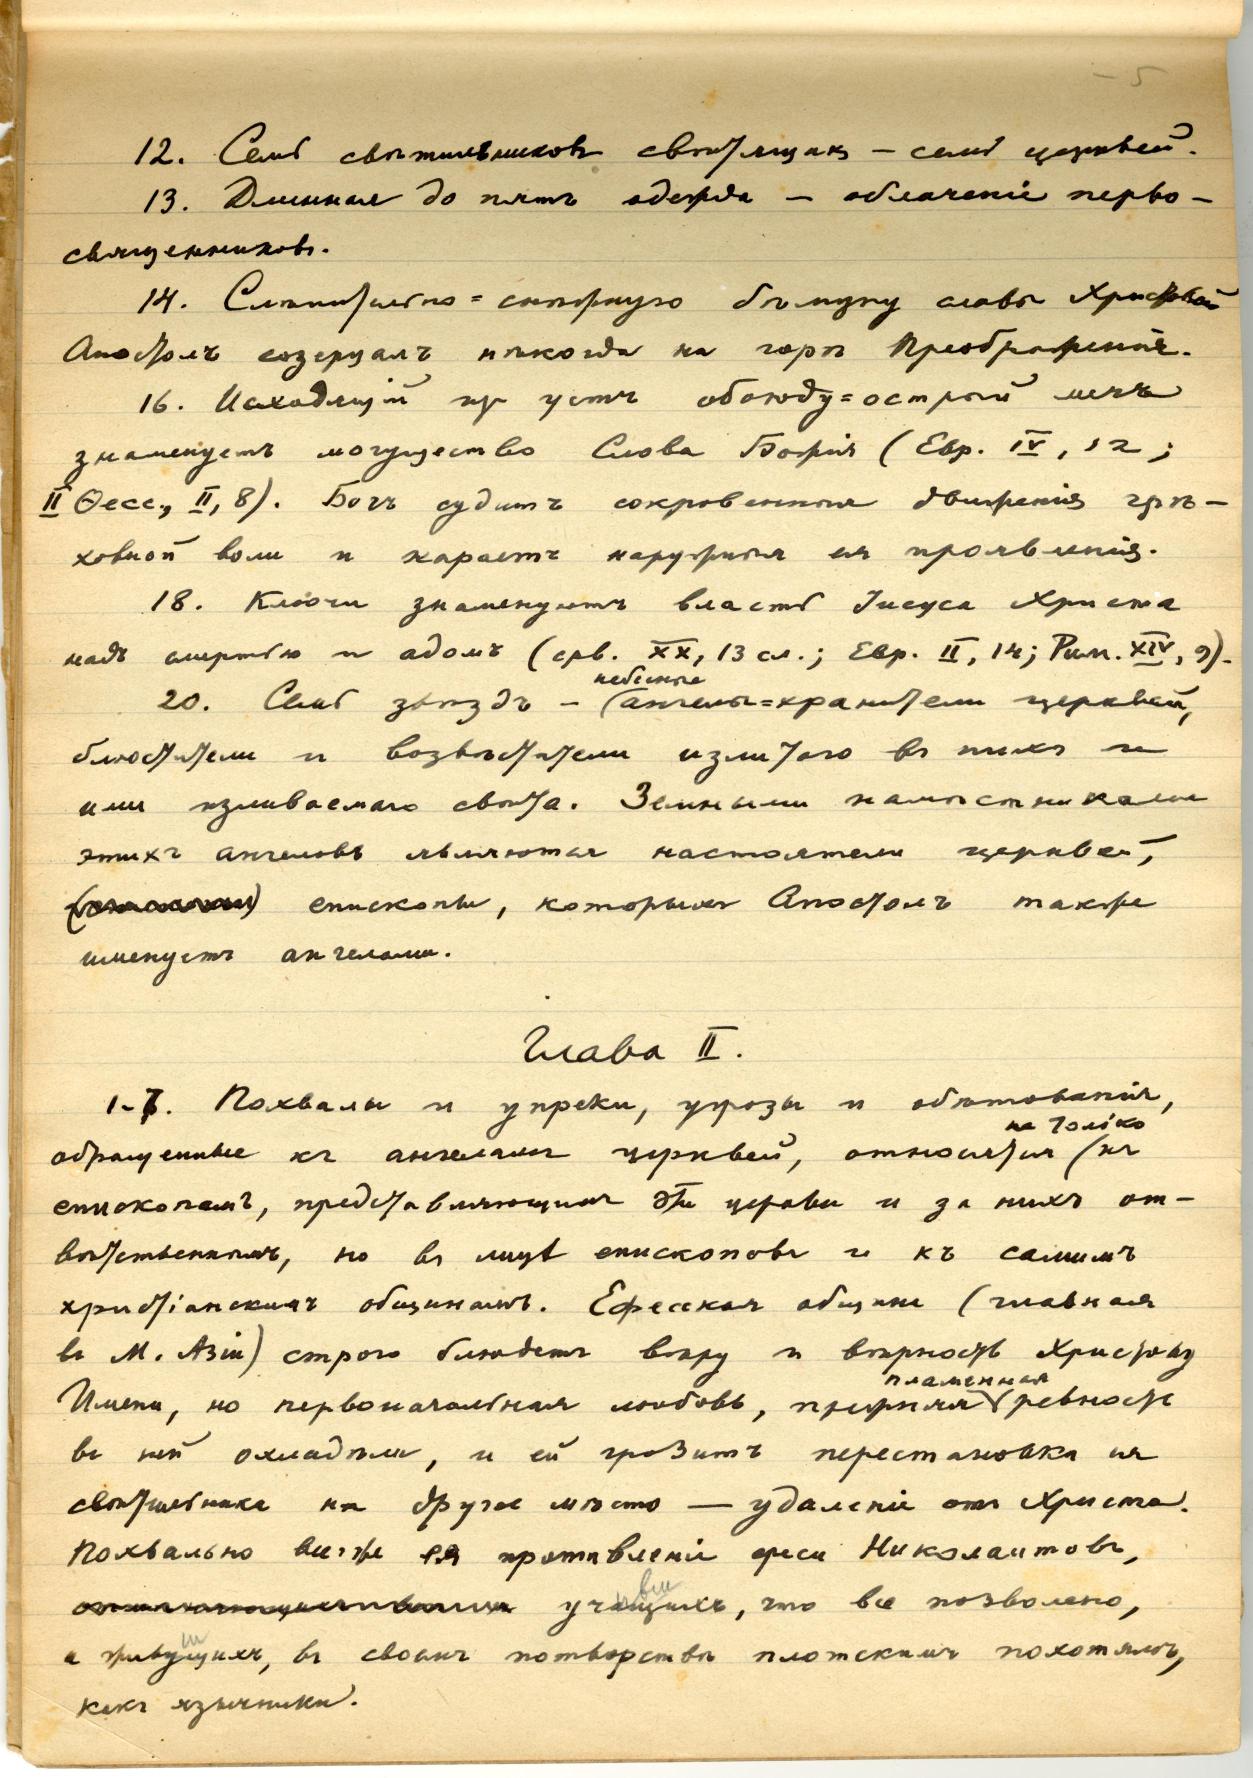 – 5
12. Семь свѣтильниковъ святящихъ – семь церквей.
13. Длинная до пятъ одежда – облаченіе перво-
священниковъ.
14. Слѣпительно=снѣжную бѣлизну славы Христовой
Апостолъ созерцалъ нѣкогда на горѣ Преображенія.
16. Исходящій изъ устъ обоюду=острый мечъ
знаменуетъ могущество Слова Божія (Евр. IV, 12;
II Ѳесс., II, 8). Богъ судитъ сокровенныя движенія грѣ-
ховной воли и караетъ наружныя ея проявленія.
18. Ключи знаменуютъ власть Іисуса Христа
надъ смертью и адомъ (срв. XX, 13 сл.; Евр. II, 14; Рим. XIV, 9).
небесные
20. Семь звѣздъ – (ангелы=хранители церквей,
блюстители и возвѣстители излитого въ нихъ и
ими изливаемаго свѣта. Земными намѣстниками
этихъ ангеловъ являются настоятели церквей,
епископы, которыхъ Апостолъ также
именуетъ ангелами.
Глава II.
1-7. Похвалы и упреки, угрозы и обѣтованія,
не только
обращенные къ ангеламъ церквей, относятся (къ
епископамъ, представляющимъ эти церкви и за нихъ от-
вѣтственнымъ, но въ лицѣ епископовъ и къ самимъ
христіанскимъ общинамъ. Ефесская община (главная
въ М. Азіи) строго блюдетъ вѣру и вѣрность Христову
Имени, но первоначальная любовь, прежняя
пламенная
ревность
въ ней охладѣли, и ей грозитъ перестановка ея
свѣтильника на другое мѣсто — удаленіе отъ Христа.
Похвально въ ея противленіи ереси Николаитовъ,
учащихъ, что все позволено,
а живущихъ, въ своемъ потворствѣ плотскимъ похотямъ,
какъ язычники.